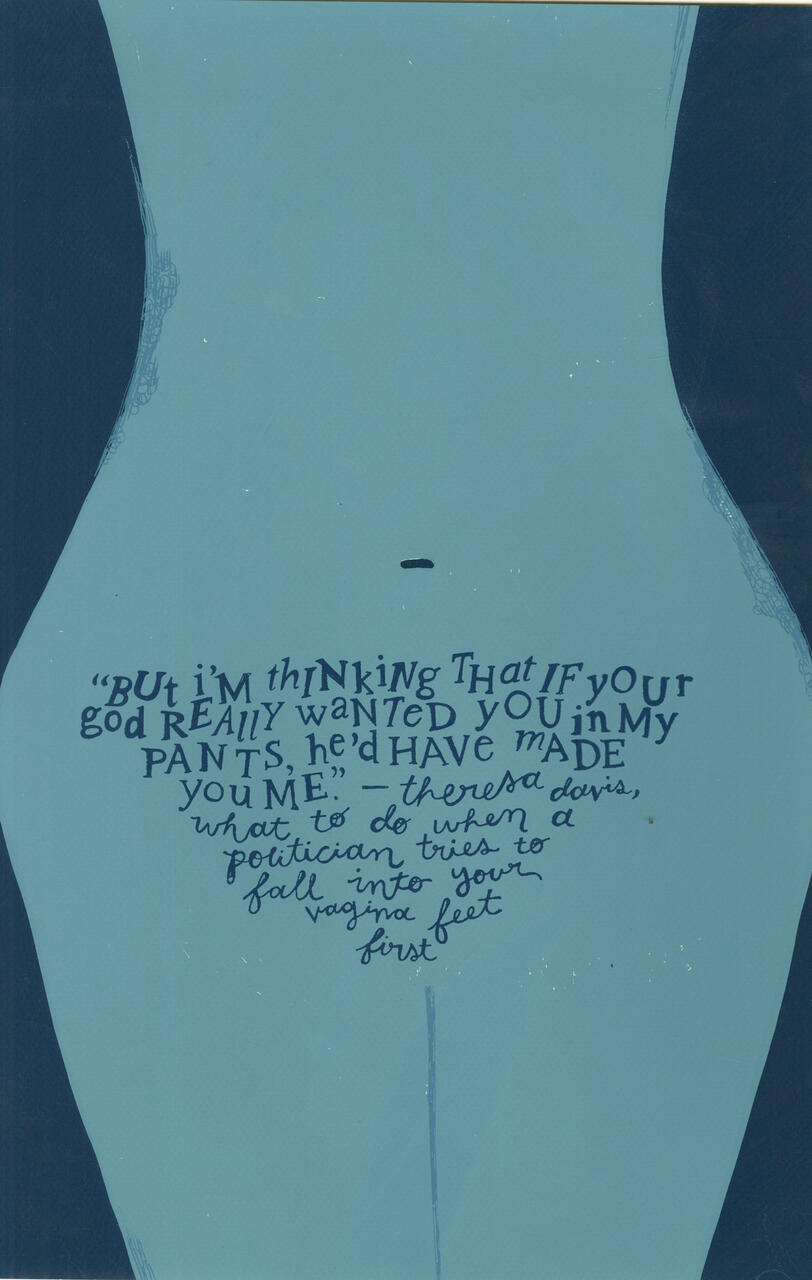 “BUt i’M thINkiNg THat IF yOUr
god REAllY waNTeD yOU in My
PANTS, he’d HAVe mADE
you ME.” — theresa davis,
what to do when a
politician tries to
fall into your
vagina feet
first